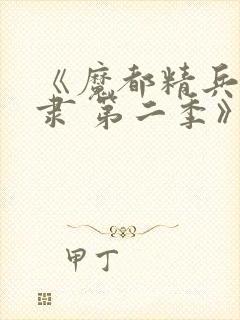 《魔都精兵
隶 第二季》
甲丁